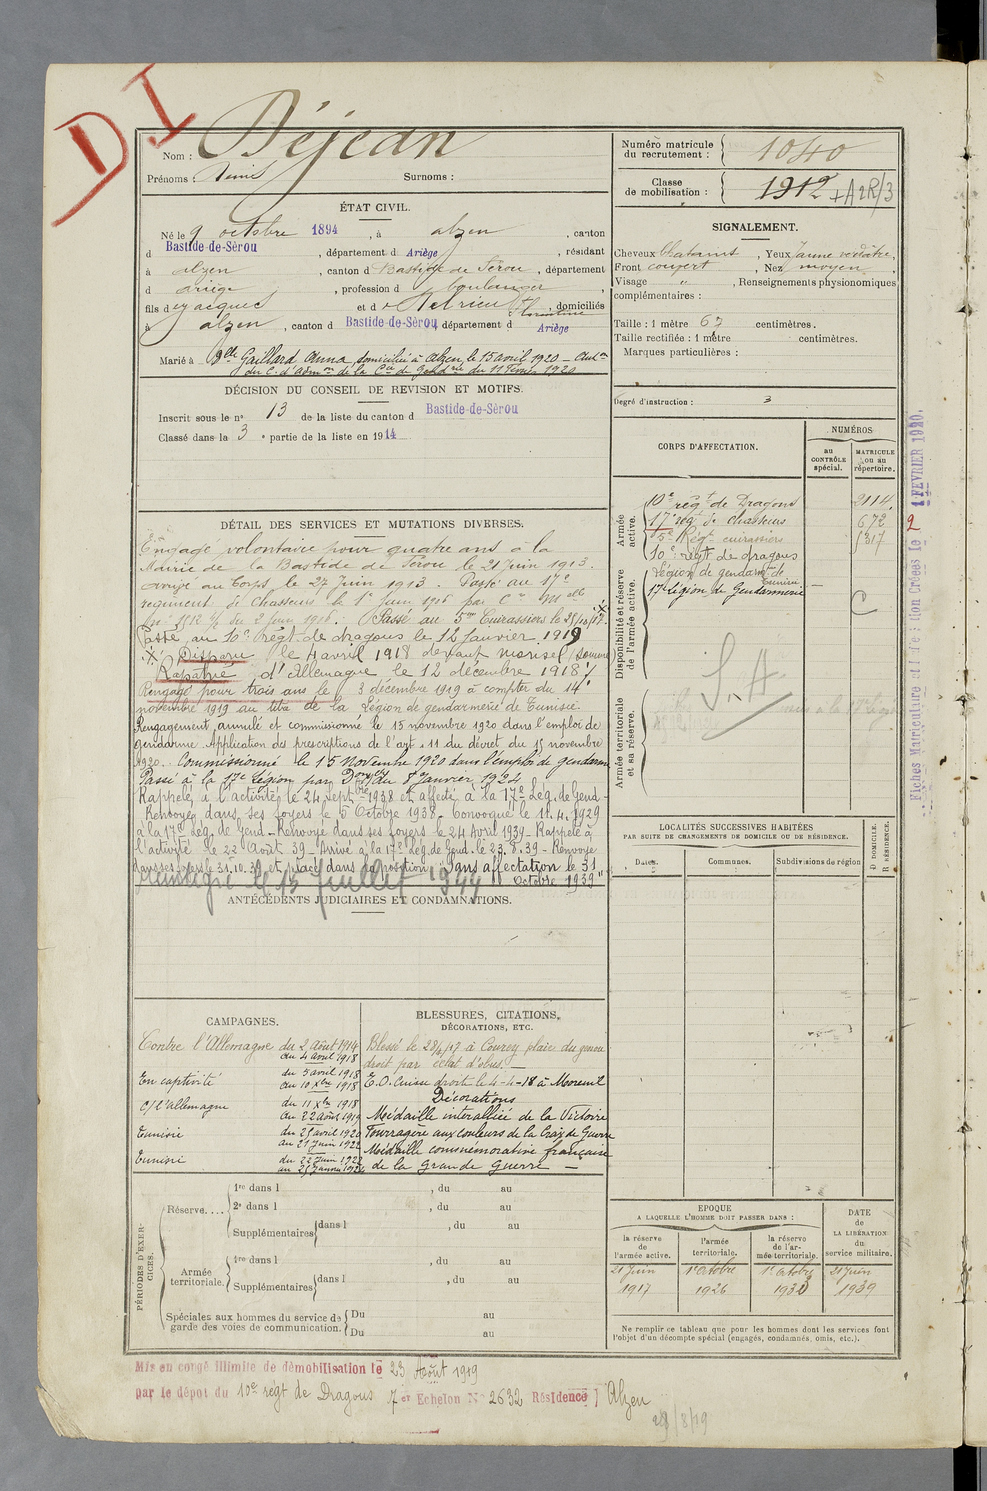 DI
Nom : Déjean
Prénoms : Denis Surnoms :
ÉTAT CIVIL.
Né le 9 octobre 1894, à alzen, canton
d Bastide-de-Sèrou, département d Ariège, résidant
à alzen, canton d Bastide de Sérou, département
d ariège, profession d boulanger,
fils d Jacques et d Florentine, domiciliés
à alzen, canton d Bastide-de-Sèrou, département d Ariège
Marié à Dlle Gaillard Anna, domiciliée à Alzen, le 15 avril 1920 – Auton
du C. d'Admon de la Cie de Gendrie du 11 Février 1920
DÉCISION DU CONSEIL DE REVISION ET MOTIFS.
Inscrit sous le no 13 de la liste du canton d Bastide-de-Sèrou
Classé dans la 3e partie de la liste en 1914
DÉTAIL DES SERVICES ET MUTATIONS DIVERSES.
Engagé volontaire pour quatre ans à la
Mairie de la Bastide de Sérou le 21 Juin 1913.
Arrivé au Corps le 27 Juin 1913. Passé au 17e
régiment de Chasseurs le 1er Juin 1916 par
du 2 Juin 1916. Passé au 5me Cuirassiers le
Passé au 10e Régt de dragons le 12 Janvier 1919
Disparu le 4 avril 1918 devant Morisel (Somme)
Rapatrié d'Allemagne le 12 décembre 1918
Rengagé pour trois ans le 3 décembre 1919 à compter du 14
novembre 1919 au titre de la Légion de gendarmerie de Tunisie
Rengagement annulé et commissionné le 15 novembre 1920 dans l'emploi de
gendarme. Application des prescriptions de l'art. 11 du décret du 15 novembre
1920. Commissionné le 15 Novembre 1920 dans l'emploi de gendarme
Passé à la 17e Légion par Don du 8 Janvier 1924
Rappelé à l'activité le 24 Septbre 1938 et affecté à la 17e Lég. de Gend.
Renvoyé dans ses foyers le 5 Octobre 1938. Convoqué le 11.4.1929
à la 17e Lég. de Gend – Renvoyé dans ses foyers le 24 Avril 1939 – Rappelé à
l'activité le 22 Août 39 – Arrivé à la 17e Lég. de Gend. le 23.8.39 – Renvoyé
dans ses foyers le 31.10.39 et placé dans la position "sans affectation le 31
Octobre 1939"
Réintégré le 15 Juillet 1944
ANTÉCÉDENTS JUDICIAIRES ET CONDAMNATIONS.
CAMPAGNES.
Contre l'Allemagne du 2 Août 1914
au 4 avril 1918
En captivité du 5 avril 1918
au 10 Xbre 1918
C/ l'Allemagne du 11 Xbre 1918
au 22 août 1919
Tunisie du 25 avril 1920
au 21 Juin 1922
Tunisie du 22 Juin 1922
au 25 Janvier 1924
BLESSURES, CITATIONS,
DÉCORATIONS, ETC.
Blessé le 28/4/17 à Courcy plaie du genou
droit par éclat d'obus. —
E.O. Cuisse droite le 4-4-18 à Moreuil
Décorations
Médaille interalliée de la Victoire
Fourragère aux couleurs de la Croix de Guerre
Médaille commémorative française
de la Grande Guerre —
PÉRIODES D'EXERCICES.
Réserve....
1re dans l , du au
2e dans l , du au
Supplémentaires dans l , du au
Armée territoriale.
1re dans l , du au
Supplémentaires dans l , du au
Spéciales aux hommes du service de garde des voies de communication. Du au
Du au
Numéro matricule du recrutement : 1040
Classe de mobilisation : 1912 + A2R/3
SIGNALEMENT.
Cheveux Chatains, Yeux Jaune verdâtre,
Front couvert, Nez moyen,
Visage ", Renseignements physionomiques
complémentaires :
Taille : 1 mètre 67 centimètres.
Taille rectifiée : 1 mètre centimètres.
Marques particulières :
Degré d'instruction : 3
CORPS D'AFFECTATION.
NUMÉROS
au CONTRÔLE spécial.
MATRICULE ou au répertoire.
Armée active.
10e régt de Dragons 2114
17e régt de chasseurs 672
5e Régt cuirassiers
10e régt de dragons
Disponibilité et réserve de l'armée active.
Légion de gendarmie de Tunisie —
17e Légion de Gendarmerie C
Armée territoriale et sa réserve.
S.A
LOCALITÉS SUCCESSIVES HABITÉES
PAR SUITE DE CHANGEMENTS DE DOMICILE OU DE RÉSIDENCE.
Dates. Communes. Subdivisions de région D DOMICILE. R RÉSIDENCE.
EPOQUE
A LAQUELLE L'HOMME DOIT PASSER DANS :
la réserve de l'armée active.
l'armée territoriale.
la réserve de l'armée territoriale.
DATE DE LA LIBÉRATION du service militaire.
21 Juin 1er Octobre 1er Octobre 21 Juin
1917 1926 1933 1939
Ne remplir ce tableau que pour les hommes dont les services font
l'objet d'un décompte spécial (engagés, condamnés, omis, etc.).
1 FEVRIER 1920.
2
Mis en congé illimité de démobilisation le 23 Août 1919
par le dépôt du 10e régt de Dragons 7er Echelon No 2632 Résidence Alzen
28/8/19